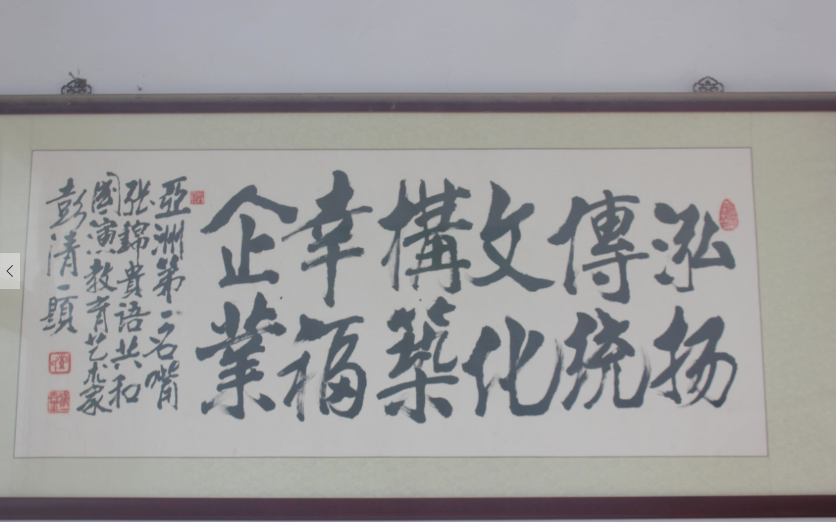 泓扬
傳统
文化
構築
幸福
企業
亞洲第一名嘴
张錦貴語共和
國演教育艺术家
彭清一題